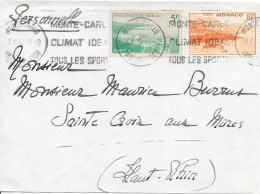 Personnelle
MONTE-CARLO
CLIMAT IDEAL
TOUS LES SPORTS
5F
MONACO
MONTE-CARLO
CLIMAT IDE
TOUS LES SPOR
Monsieur
Monsieur Maurice Burrus
Sainte Croix aux Mines
(Haut-Rhin)